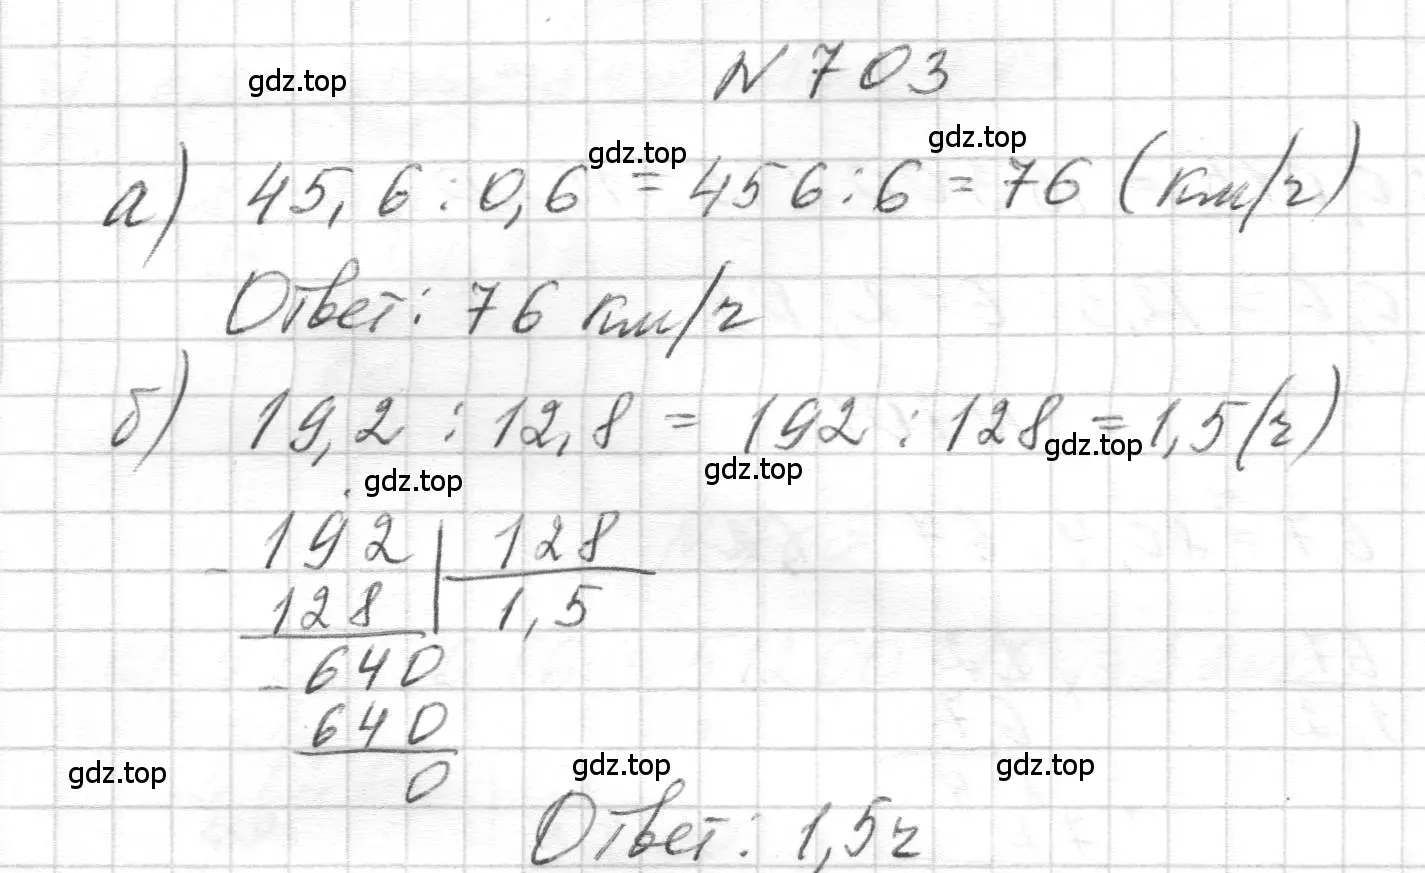 N 703
gdz.top
а) 45,6 : 0,6 = 456 : 6 = 76 (км/ч)
gdz.top
gdz.top
Ответ: 76 км/ч
б) 19,2 : 12,8 = 192 : 128 = 1,5 (ч)
gdz.top
gdz.top
gdz.top
- 192 | 128
128 1,5
- 640
640
0
gdz.top
gdz.top
gdz.top
Ответ: 1,5 ч